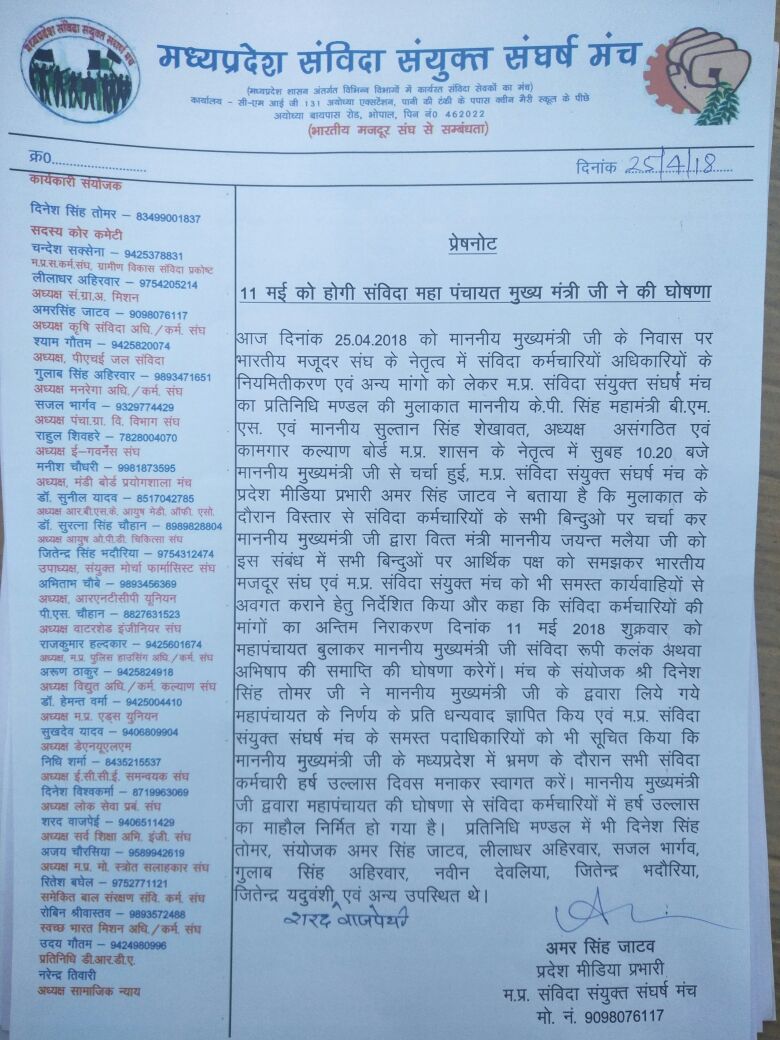 मध्यप्रदेश संविदा संयुक्त संघर्ष मंच
मध्यप्रदेश संविदा संयुक्त संघर्ष मंच
(मध्यप्रदेश शासन अंतर्गत विभिन्न विभागों में कार्यरत संविदा सेवकों का मंच)
कार्यालय - सी-एम आई जी 131 अयोध्या एक्सटेंशन, पानी की टंकी के पपास क्वीन मैरी स्कूल के पीछे
अयोध्या बायपास रोड, भोपाल, पिन नं0 462022
(भारतीय मजदूर संघ से सम्बंधता)
क्र0..........................
दिनांक 25/4/18
कार्यकारी संयोजक
दिनेश सिंह तोमर – 83499001837
सदस्य कोर कमेटी
चन्देश सक्सेना – 9425378831
म.प्र.स.कर्म.संघ, ग्रामीण विकास संविदा प्रकोष्ट
लीलाधर अहिरवार – 9754205214
अध्यक्ष सं.ग्रा.अ. मिशन
अमरसिंह जाटव – 9098076117
अध्यक्ष कृषि संविदा अधि./कर्म. संघ
श्याम गौतम – 9425820074
अध्यक्ष, पीएचई जल संविदा
गुलाब सिंह अहिरवार – 9893471651
अध्यक्ष मनरेगा अधि./कर्म. संघ
सजल भार्गव – 9329774429
अध्यक्ष पंचा.ग्रा. वि. विभाग संघ
राहुल शिवहरे – 7828004070
अध्यक्ष ई-गवर्नेंस संघ
मनीश चौधरी – 9981873595
अध्यक्ष, मंडी बोर्ड प्रयोगशाला मंच
डॉ. सुनील यादव – 8517042785
अध्यक्ष आर.बी.एस.के. आयुष मेडी. ऑफी. एसो.
डॉ. सुरत्ना सिंह चौहान – 8989828804
अध्यक्ष आयुष ओ.पी.डी. चिकित्सा संघ
जितेन्द्र सिंह भदौरिया – 9754312474
उपाध्यक्ष, संयुक्त मोर्चा फार्मासिस्ट संघ
अभिताभ चौबे – 9893456369
अध्यक्ष, आरएनटीसीपी यूनियन
पी.एस. चौहान – 8827631523
अध्यक्ष वाटरशेड इंजीनियर संघ
राजकुमार हल्दकार – 9425601674
अध्यक्ष, म.प्र. पुलिस हाउसिंग अधि./कर्म. संघ
अरूण ठाकुर – 9425824918
अध्यक्ष विद्युत अधि./कर्म. कल्याण संघ
डॉ. हेमन्त वर्मा – 9425004410
अध्यक्ष म.प्र. एड्स यूनियन
सुखदेव यादव – 9406809904
अध्यक्ष डेएनयूएलएम
निधि शर्मा – 8435215537
अध्यक्ष ई.सी.सी.ई. समन्वयक संघ
दिनेश विश्वकर्मा – 8719963069
अध्यक्ष लोक सेवा प्रबं. संघ
शरद वाजपेई – 9406511429
अध्यक्ष सर्व शिक्षा अभि. इंजी. संघ
अजय चौरसिया – 9589942619
अध्यक्ष म.प्र. मो. स्त्रोत सलाहकार संघ
रितेश बघेल – 9752771121
समेकित बाल संरक्षण संवि. कर्म. संघ
रोबिन श्रीवास्तव – 9893572488
स्वच्छ भारत मिशन अधि./कर्म. संघ
उदय गौतम – 9424980996
प्रतिनिधि डी.आर.डी.ए.
नरेन्द्र तिवारी
अध्यक्ष सामाजिक न्याय
प्रेषनोट
11 मई को होगी संविदा महा पंचायत मुख्य मंत्री जी ने की घोषणा
आज दिनांक 25.04.2018 को माननीय मुख्यमंत्री जी के निवास पर
भारतीय मजूदर संघ के नेतृत्व में संविदा कर्मचारियों अधिकारियों के
नियमितीकरण एवं अन्य मांगो को लेकर म.प्र. संविदा संयुक्त संघर्ष मंच
का प्रतिनिधि मण्डल की मुलाकात माननीय के.पी. सिंह महामंत्री बी.एम.
एस. एवं माननीय सुल्तान सिंह शेखावत, अध्यक्ष असंगठित एवं
कामगार कल्याण बोर्ड म.प्र. शासन के नेतृत्व में सुबह 10.20 बजे
माननीय मुख्यमंत्री जी से चर्चा हुई, म.प्र. संविदा संयुक्त संघर्ष मंच के
प्रदेश मीडिया प्रभारी अमर सिंह जाटव ने बताया है कि मुलाकात के
दौरान विस्तार से संविदा कर्मचारियों के सभी बिन्दुओ पर चर्चा कर
माननीय मुख्यमंत्री जी द्वारा वित्त मंत्री माननीय जयन्त मलैया जी को
इस संबंध में सभी बिन्दुओं पर आर्थिक पक्ष को समझकर भारतीय
मजदूर संघ एवं म.प्र. संविदा संयुक्त मंच को भी समस्त कार्यवाहियों से
अवगत कराने हेतु निर्देशित किया और कहा कि संविदा कर्मचारियों की
मांगों का अन्तिम निराकरण दिनांक 11 मई 2018 शुक्रवार को
महापंचायत बुलाकर माननीय मुख्यमंत्री जी संविदा रूपी कलंक अथवा
अभिषाप की समाप्ति की घोषणा करेगें। मंच के संयोजक श्री दिनेश
सिंह तोमर जी ने माननीय मुख्यमंत्री जी के द्वारा लिये गये
महापंचायत के निर्णय के प्रति धन्यवाद ज्ञापित किय एवं म.प्र. संविदा
संयुक्त संघर्ष मंच के समस्त पदाधिकारियों को भी सूचित किया कि
माननीय मुख्यमंत्री जी के मध्यप्रदेश में भ्रमण के दौरान सभी संविदा
कर्मचारी हर्ष उल्लास दिवस मनाकर स्वागत करें। माननीय मुख्यमंत्री
जी द्ववारा महापंचायत की घोषणा से संविदा कर्मचारियों में हर्ष उल्लास
का माहौल निर्मित हो गया है। प्रतिनिधि मण्डल में भी दिनेश सिंह
तोमर, संयोजक अमर सिंह जाटव, लीलाधर अहिरवार, सजल भार्गव,
गुलाब सिंह अहिरवार, नवीन देवलिया, जितेन्द्र भदौरिया,
जितेन्द्र यदुवंशी एवं अन्य उपस्थित थे।
शरद वाजपेयी
अमर सिंह जाटव
प्रदेश मीडिया प्रभारी
म.प्र. संविदा संयुक्त संघर्ष मंच
मो. नं. 9098076117